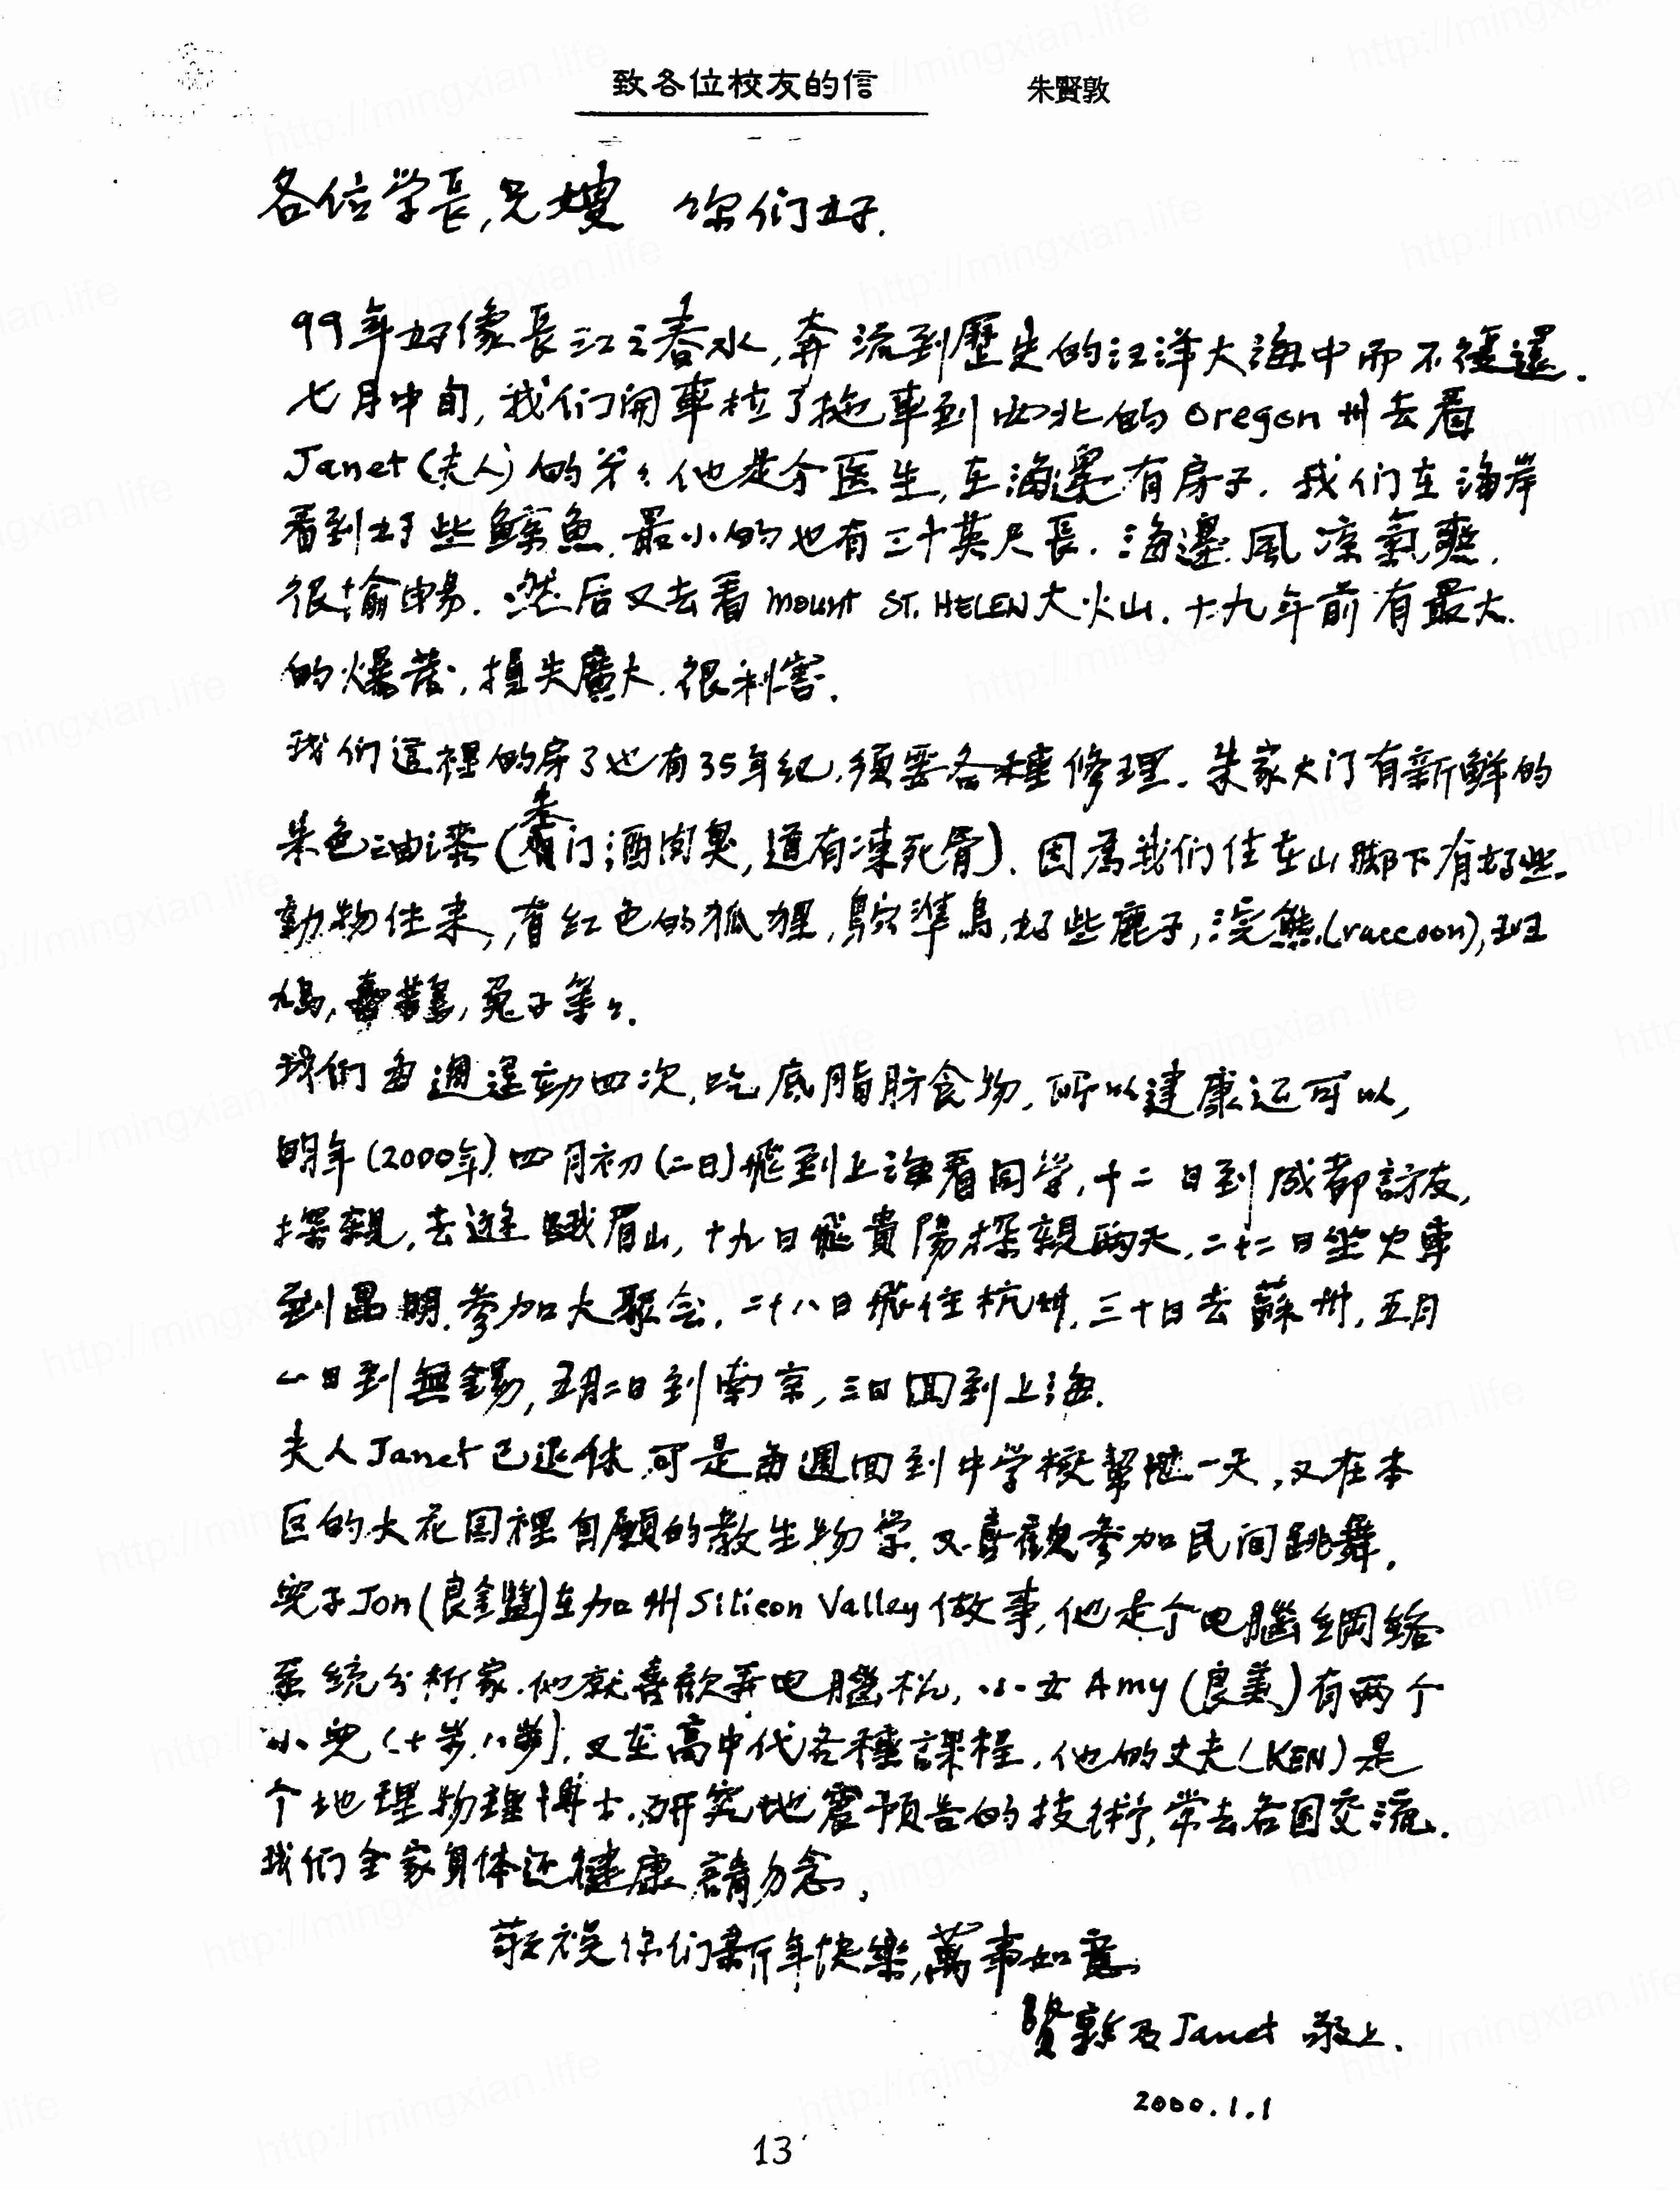 致各位校友的信 朱賢敦
各位学長,兄嫂 你们好.
99年好像長江之春水,奔流到歷史的汪洋大海中而不復還.
七月中旬,我们開車拉了拖車到西北的Oregon州去看
Janet(夫人)的弟々他是个医生,在海邊有房子.我们在海岸
看到好些鯨魚,最小的也有三十英尺長.海邊風凉氣爽,
很愉暢.然后又去看mount ST. HELEN大火山.十九年前有最大
的爆發,損失廣大.很利害.
我们這裡的房子也有35年纪,須要各種修理.朱家大门有新鮮的
朱色油漆(朱门酒肉臭,道有凍死骨).因為我们住在山脚下有好些
動物往来,有红色的狐狸,鴕準鳥,好些鹿子,浣熊(raccoon),斑
鳩,喜鵲,兔子等々.
我们每週運動四次,吃底脂肪食物,所以建康还可以,
明年(2000年)四月初(二日)飛到上海看同学,十二日到成都訪友,
探親,去遊峨眉山,十九日飛貴陽探親兩天,二十二日坐火車
到昆明.参加大聚会,二十八日飛往杭州,三十日去蘇州,五月
一日到無錫,五月二日到南京,三日回到上海.
夫人Janet已退休,可是每週回到中学校幫忙一天,又在本
区的大花园裡自願的教生物学.又喜歡参加民间跳舞.
兒子Jon(良鑑)在加州Silicon Valley做事,他是个电腦網络
系统分析家.他就喜歡弄电腦机,小女Amy(良美)有两个
小兒(十岁,八岁),又在高中代各種課程.他的丈夫(KEN)是
个地理物理博士.研究地震予預告的技術,常去各国交流.
我们全家身体还健康,請勿念,
敬祝你们新年快樂,萬事如意
賢敦及Janet 敬上.
2000.1.1
13